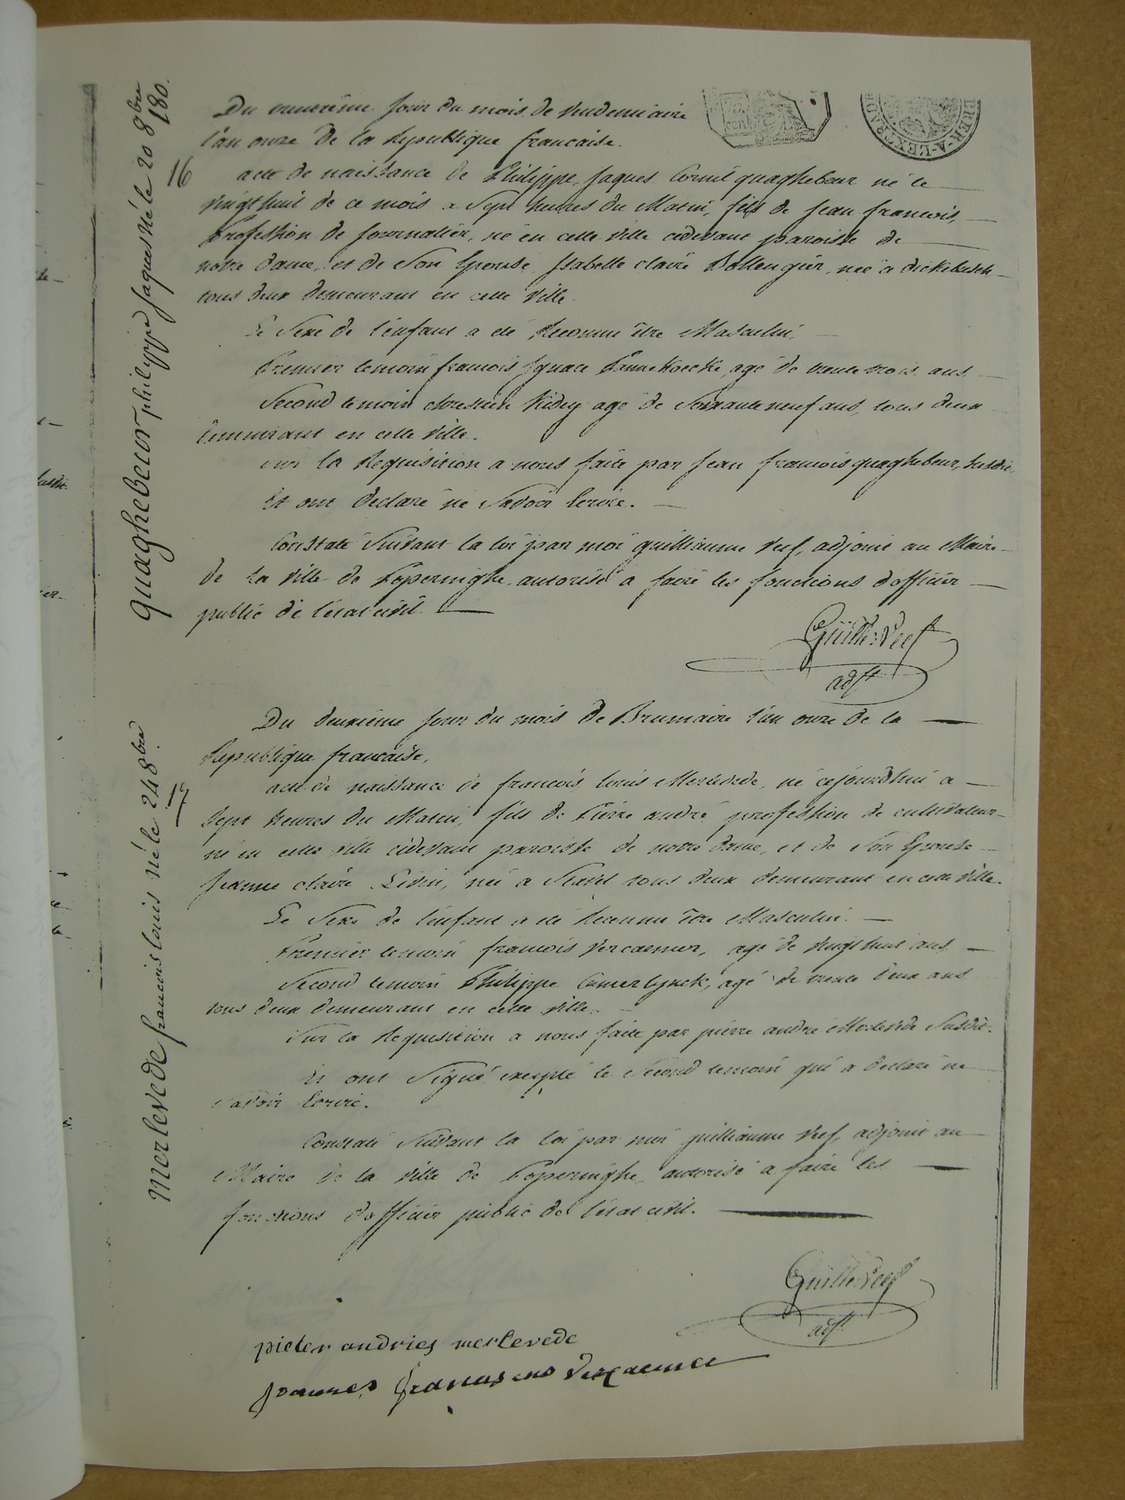 Du jour du mois de Vendemiaire
l'an onze de la Republique francaise.
16
acte de naissance de Philippe Jaques Cornil quaghebeur né le
vingt huit de ce mois a Sept heures du Matin, fils de Jean francois,
profession de Journalier, né en cette ville cidevant paroisse de
notre dame, et de Son Epouse Isabelle claire Bollengier, née a dickebusch
tous deux demeurant en cette ville.
Le Sexe de l'enfant a été Reconnu être Masculin.
Premier temoin francois Ignace agé de trente trois ans
Second temoin agé de Soixante neuf ans tous deux
demeurant en cette ville.
sur la Requisition a nous faite par Jean francois quaghebeur, susdit
Et ont declaré ne Savoir Ecrire.
Constaté Suivant la loi par moi guilliaume Veef, adjoint au Maire
de la ville de Poperinghe autorisé a faire les fonctions d'officier
public de l'état civil.
Guille: Veef
adjt
quaghebeur philippe Jaques né le 20 8bre 180.
Du deuxième Jour du mois de Brumaire l'an onze de la
Republique francaise.
17
acte de naissance de francois louis Merlevede, né cejourdhui a
Sept heures du Matin, fils de Pierre andré profession de cultivateur
né en cette ville cidevant paroisse de notre dame, et de Son Epouse
Jeanne claire née a tous deux demeurant en cette ville.
Le Sexe de l'enfant a été Reconnu être Masculin.
Premier temoin francois Vercaemer, agé de vingt huit ans
Second temoin Philippe Camerlynck, agé de trente deux ans
tous deux demeurant en cette ville.
Sur la Requisition a nous faite par pierre andré Merlevede Susdit.
Et ont Signé excepté le Second temoin qui a declaré ne
Savoir Ecrire.
Constaté Suivant la loi par moi guilliaume Veef, adjoint au
Maire de la ville de Poperinghe autorisé a faire les
fonctions d'officier public de l'état civil.
Guille: Veef
adjt
merlevede francois louis né le 24 8bre
pieter andries merlevede
Joannes francus